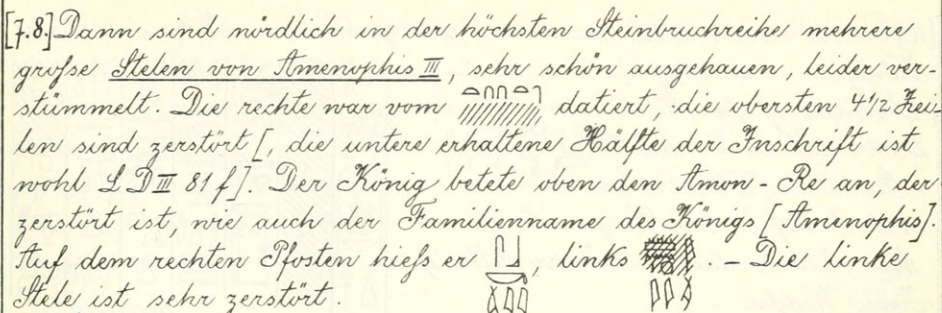 [7.8.] Dann sind nördlich in der höchsten Steinbruchreihe mehrere
große Stelen von Amenophis III, sehr schön ausgehauen, leider ver-
stümmelt. Die rechte war vom datiert, die obersten 4 1/2 Zei-
len sind zerstört [, die untere erhaltene Hälfte der Inschrift ist
wohl L D III 81 f]. Der König betete oben den Amon-Re an, der
zerstört ist, wie auch der Familienname des Königs [Amenophis].
Auf dem rechten Pfosten hieß er , links . – Die linke
Stele ist sehr zerstört.